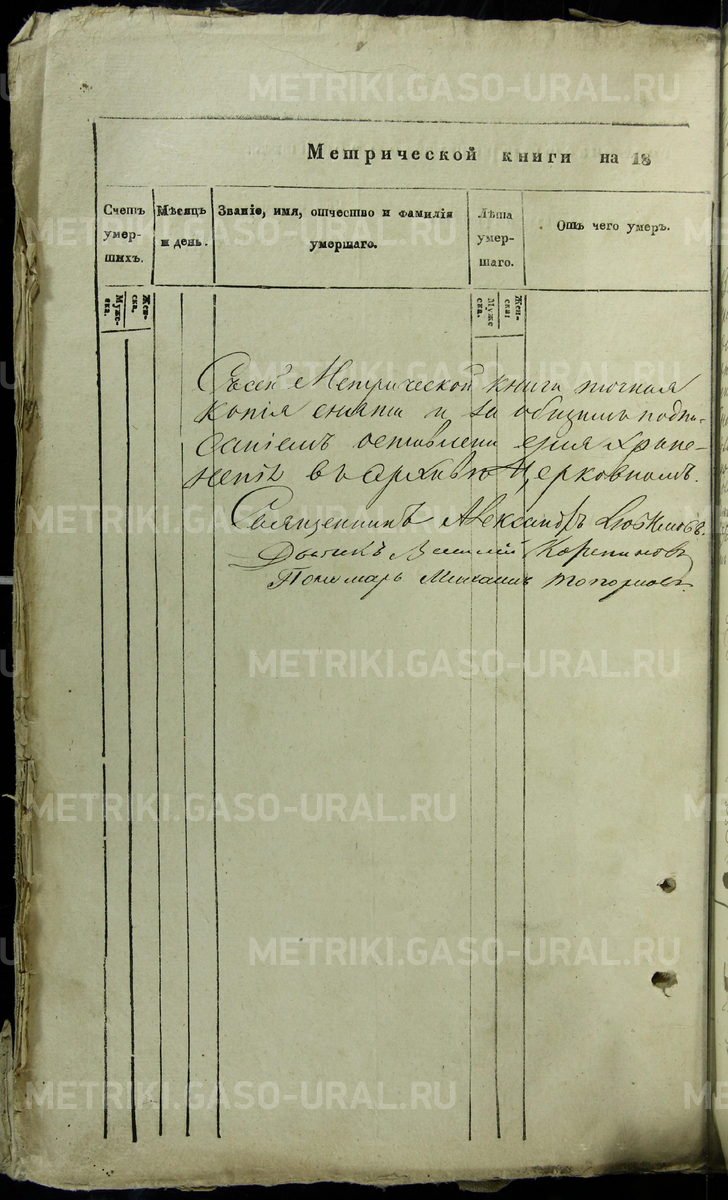 METRIKI.GASO-URAL.RU
Метрической книги на 18
Счетъ умер- шихъ.
Мѣсяцъ и день.
Званіе, имя, отчество и фамилія умершаго.
Лѣта умер- шаго.
Отъ чего умеръ.
Муже- ска.
Жен- ска.
Муже ска.
Жен- ска:
Съ сей Метрической книги точная
копія снята и за общимъ подпи-
саніемъ оставлена для хране-
нія въ архивѣ Церковномъ.
Священникъ Александръ
Дьячекъ Василій
Пономарь Михаилъ Топорковъ
METRIKI.GASO-URAL.RU
METRIKI.GASO-URAL.RU
METRIKI.GASO-URAL.RU
METRIKI.GASO-URAL.RU
METRIKI.GASO-URAL.RU
METRIKI.GASO-URAL.RU
METRIKI.GASO-URAL.RU